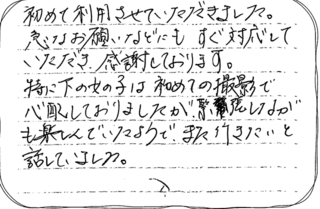 初めて利用させていただきました。
急なお願いなどにも すぐ対応して
いただき 感謝しております。
特に下の女の子は 初めての撮影で
心配しておりましたが 緊張しながら
も楽しんでいたようで、また行きたいと
話していました。